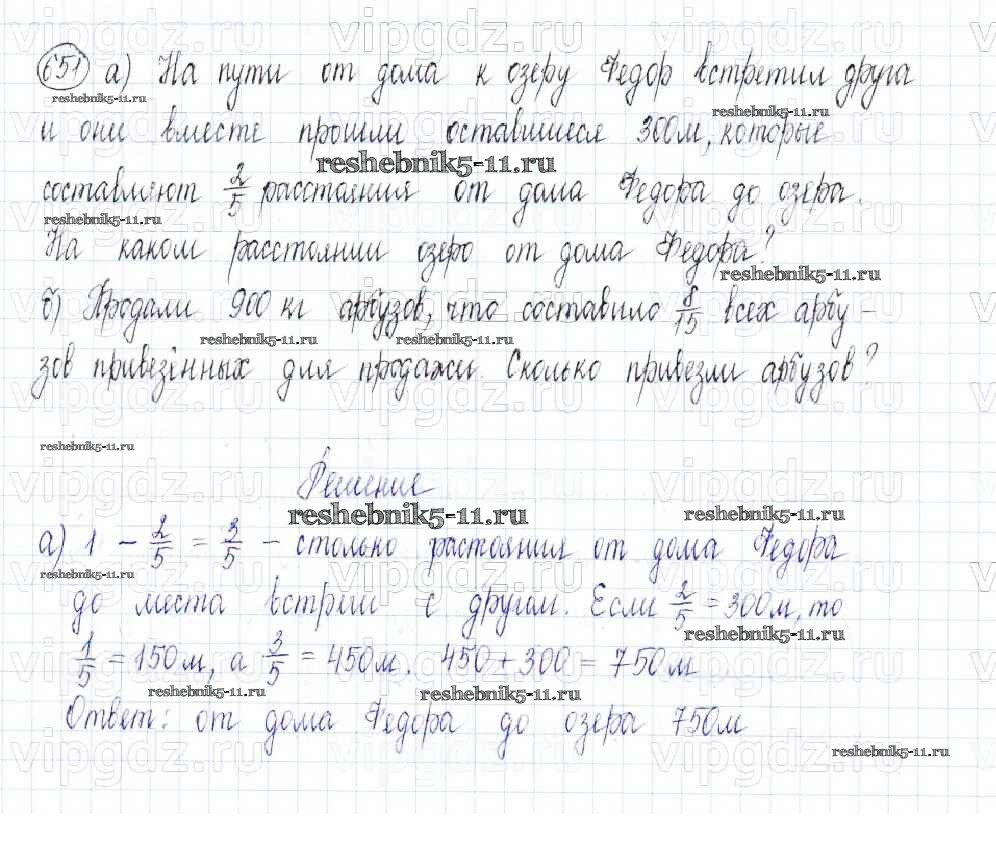 651 а) На пути от дома к озеру Федор встретил друга
и они вместе прошли оставшиеся 300м, которые
составляют 2/5 расстояния от дома Федора до озера.
На каком расстоянии озеро от дома Федора?
б) Продали 900 кг арбузов, что составило 8/15 всех арбу-
зов привезённых для продажи. Сколько привезли арбузов?
Решение
а) 1 - 2/5 = 3/5 - столько растояния от дома Федора
до места встречи с другом. Если 2/5 = 300м, то
1/5 = 150м, а 3/5 = 450м. 450 + 300 = 750м
Ответ: от дома Федора до озера 750м
vipgdz.ru
reshebnik5-11.ru